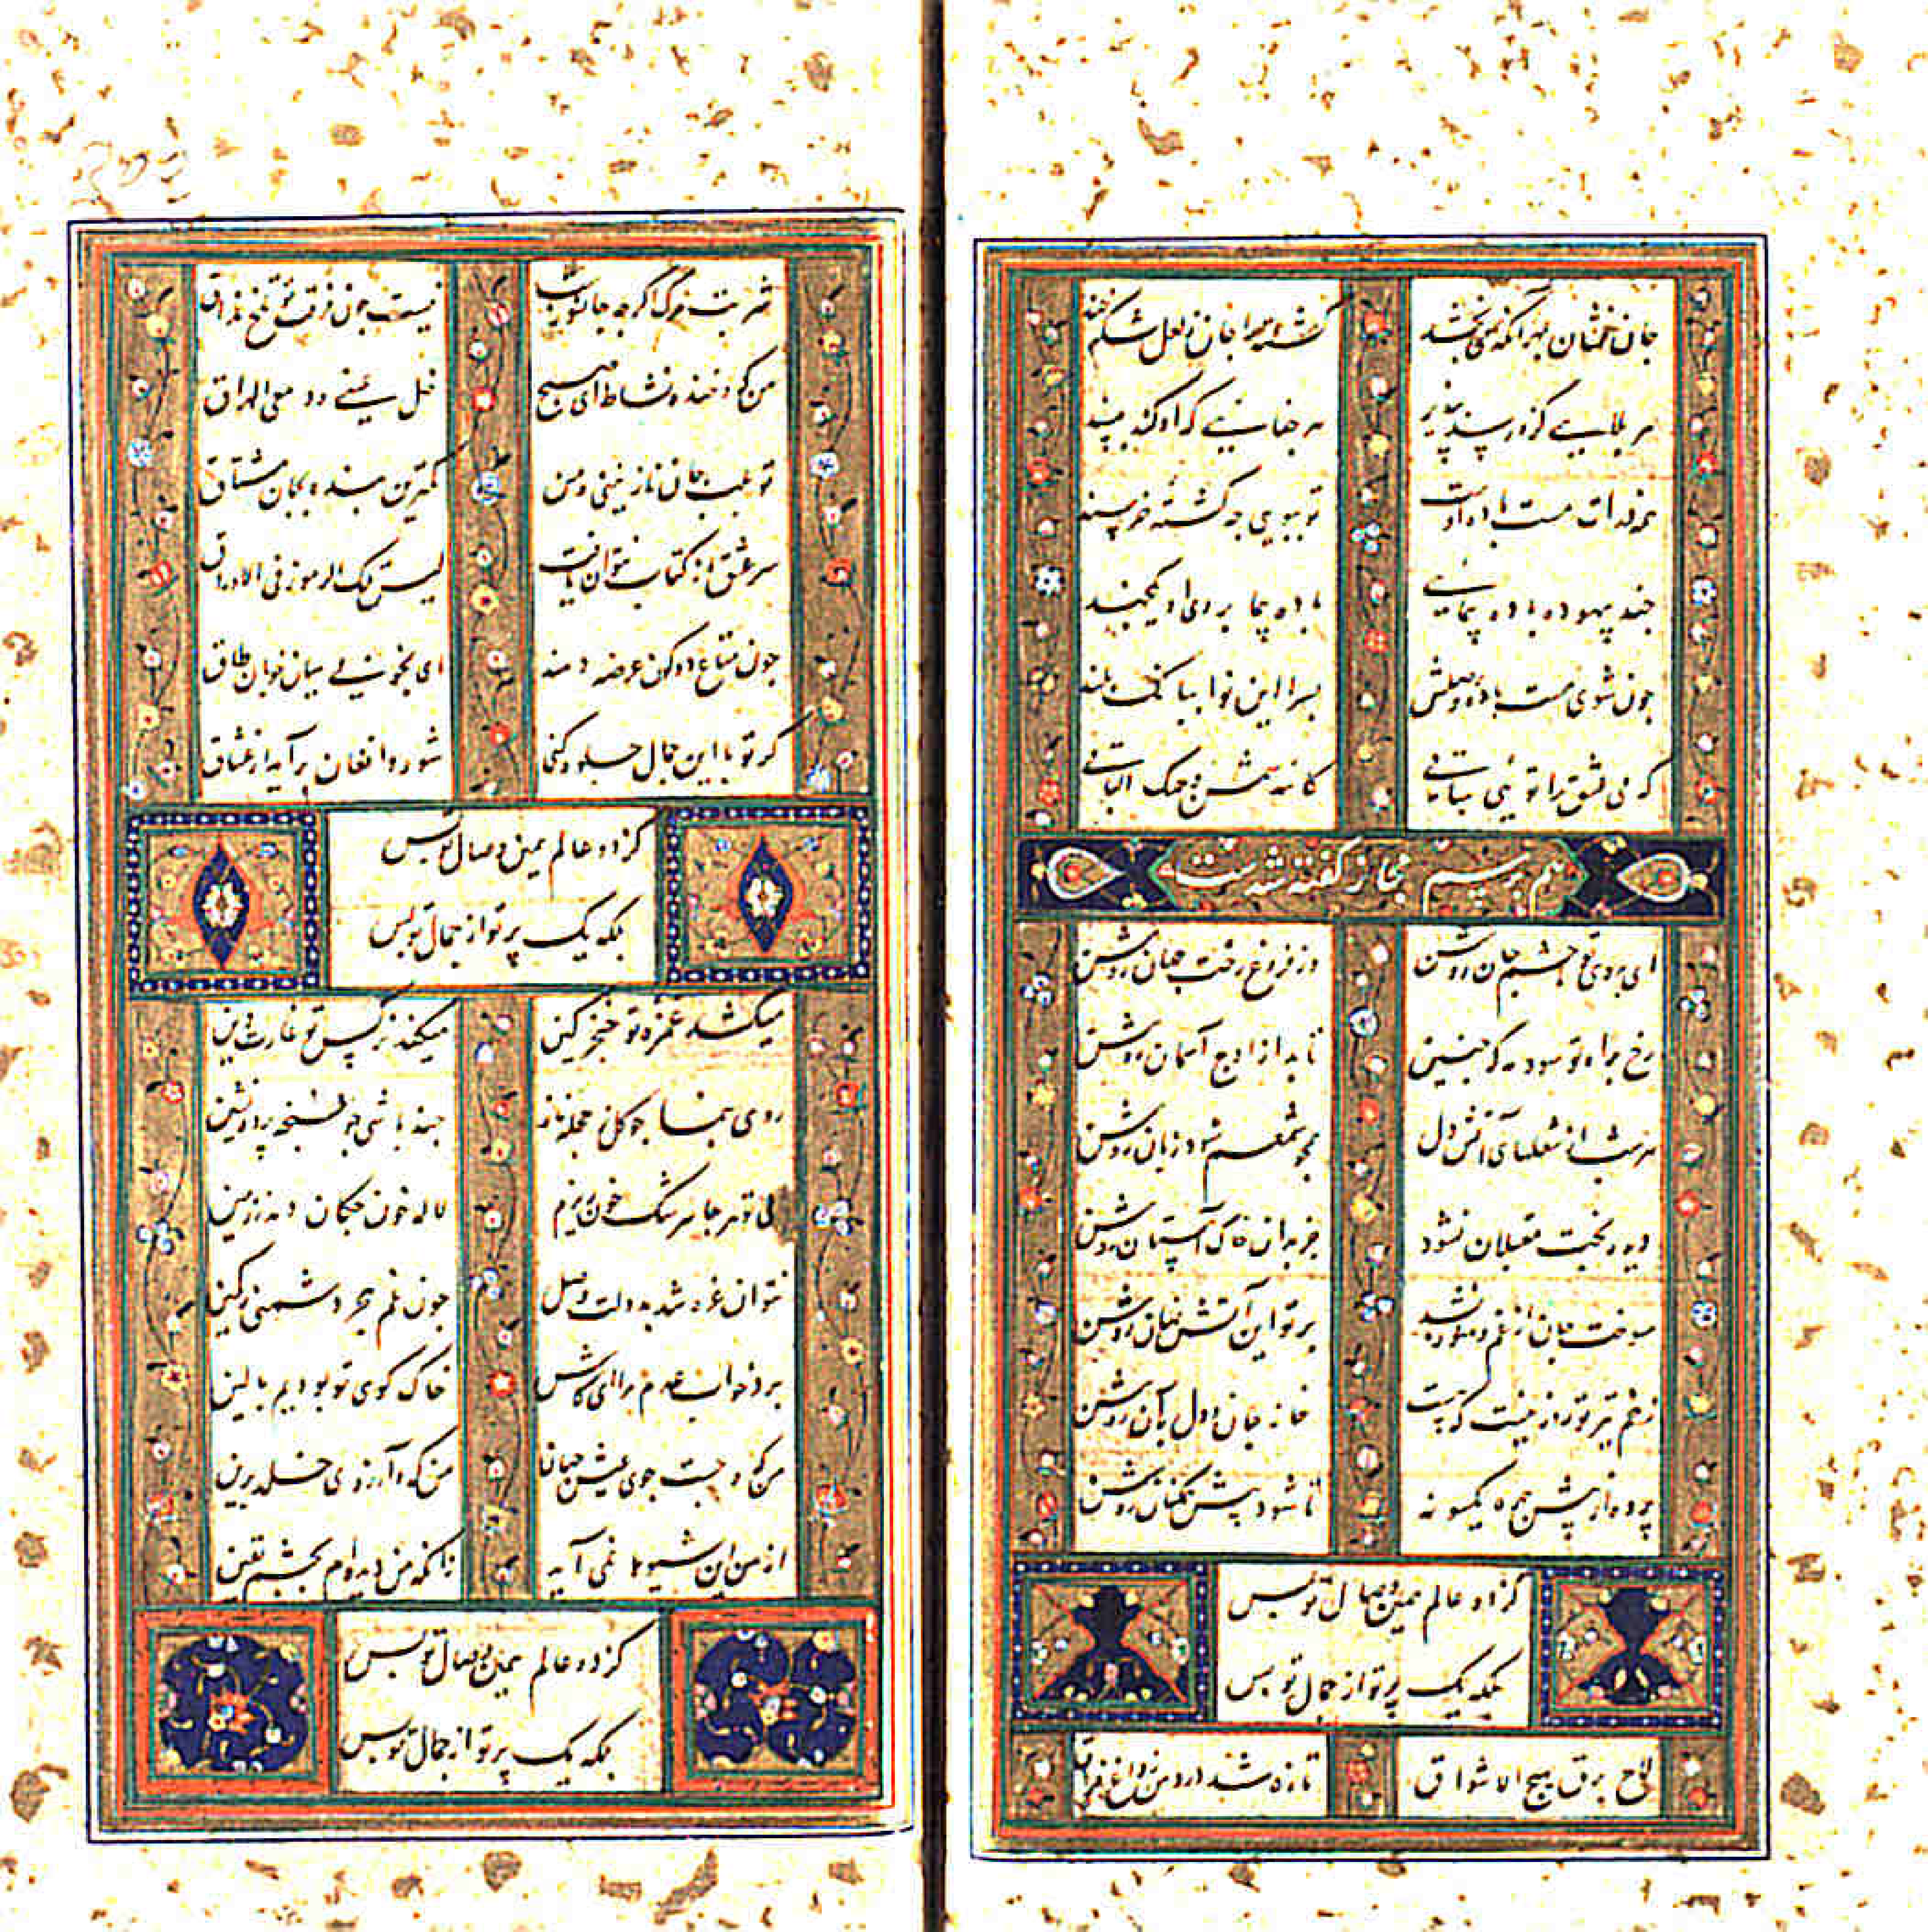 جان فشان بهر آنکه می بخشد کشته را جان ز لعل شکرخند
هر بلایی کزو رسد بپذیر هر جفایی که او کند بپسند
همه ذرات مست باده اوست تو ببویی چه گشته خرسند
چند بیهوده باده پیمایی باده پیما بروی او یکچند
چون شوی مست باده وصلش بسرا این نوا ببانگ بلند
که می عشق را تویی ساقی کاسه شمس وجهک الباقی
هم برسم مجاز گفته شدست
ای بروی تو چشم جان روشن وز فروغ رخت جهان روشن
رخ براه تو سود مه که چنین تابد از اوج آسمان روشن
هر شب از شعلهای آتش دل همچو شمعم شود زبان روشن
دیده بخت مقبلان نشود جز بدان خاک آستان روشن
سوخت جان از غم و هنوز نشد بر تو این آتش نهان روشن
زخم تیر تو روزنیست کزوست خانه جان و دل بآن روشن
پرده از پیش چهره یکسو نه تا شود پیش همکنان روشن
کز دو عالم همین وصال تو بس
بلکه یک پرتو از جمال تو بس
لاح برق یهیج الاشواق تازه شد درد من ز داغ فراق
شربت مرگ اگرچه جانسوزست نیست چون فرقت تو تلخ مذاق
من که و خنده نشاط ای صبح خل عینی و دمعی المهراق
تو بلب جان نازنینی و من کمترین بنده بجان مشتاق
سر عشق از کتاب نتوان یافت لیس تلک الرموز فی الاوراق
چون متاع دو کون عرضه دهند ای بخوبی میان خوبان طاق
گر تو با این جمال جلوه کنی شور و افغان برآید از عشاق
کز دو عالم همین وصال تو بس
بلکه یک پرتو از جمال تو بس
میکشد غمزه تو خنجر کین میکند نرگس تو غارت دین
روی بنما چو گل ز حجله ناز چند باشی چو غنچه پرده نشین
بی تو هر جا سرشک خون ریزم لاله خون چکان دمد ز زمین
نتوان غره شد بدولت وصل چون غم هجر دشمنی ز کمین
برد خواب عدم مرا ای کاش خاک کوی تو بودیم بالین
من که و جست جوی عیش جهان من که و آرزوی خلد برین
از من این شیوها نمی آید زانکه من دیده ام بچشم یقین
کز دو عالم همین وصال تو بس
بلکه یک پرتو از جمال تو بس